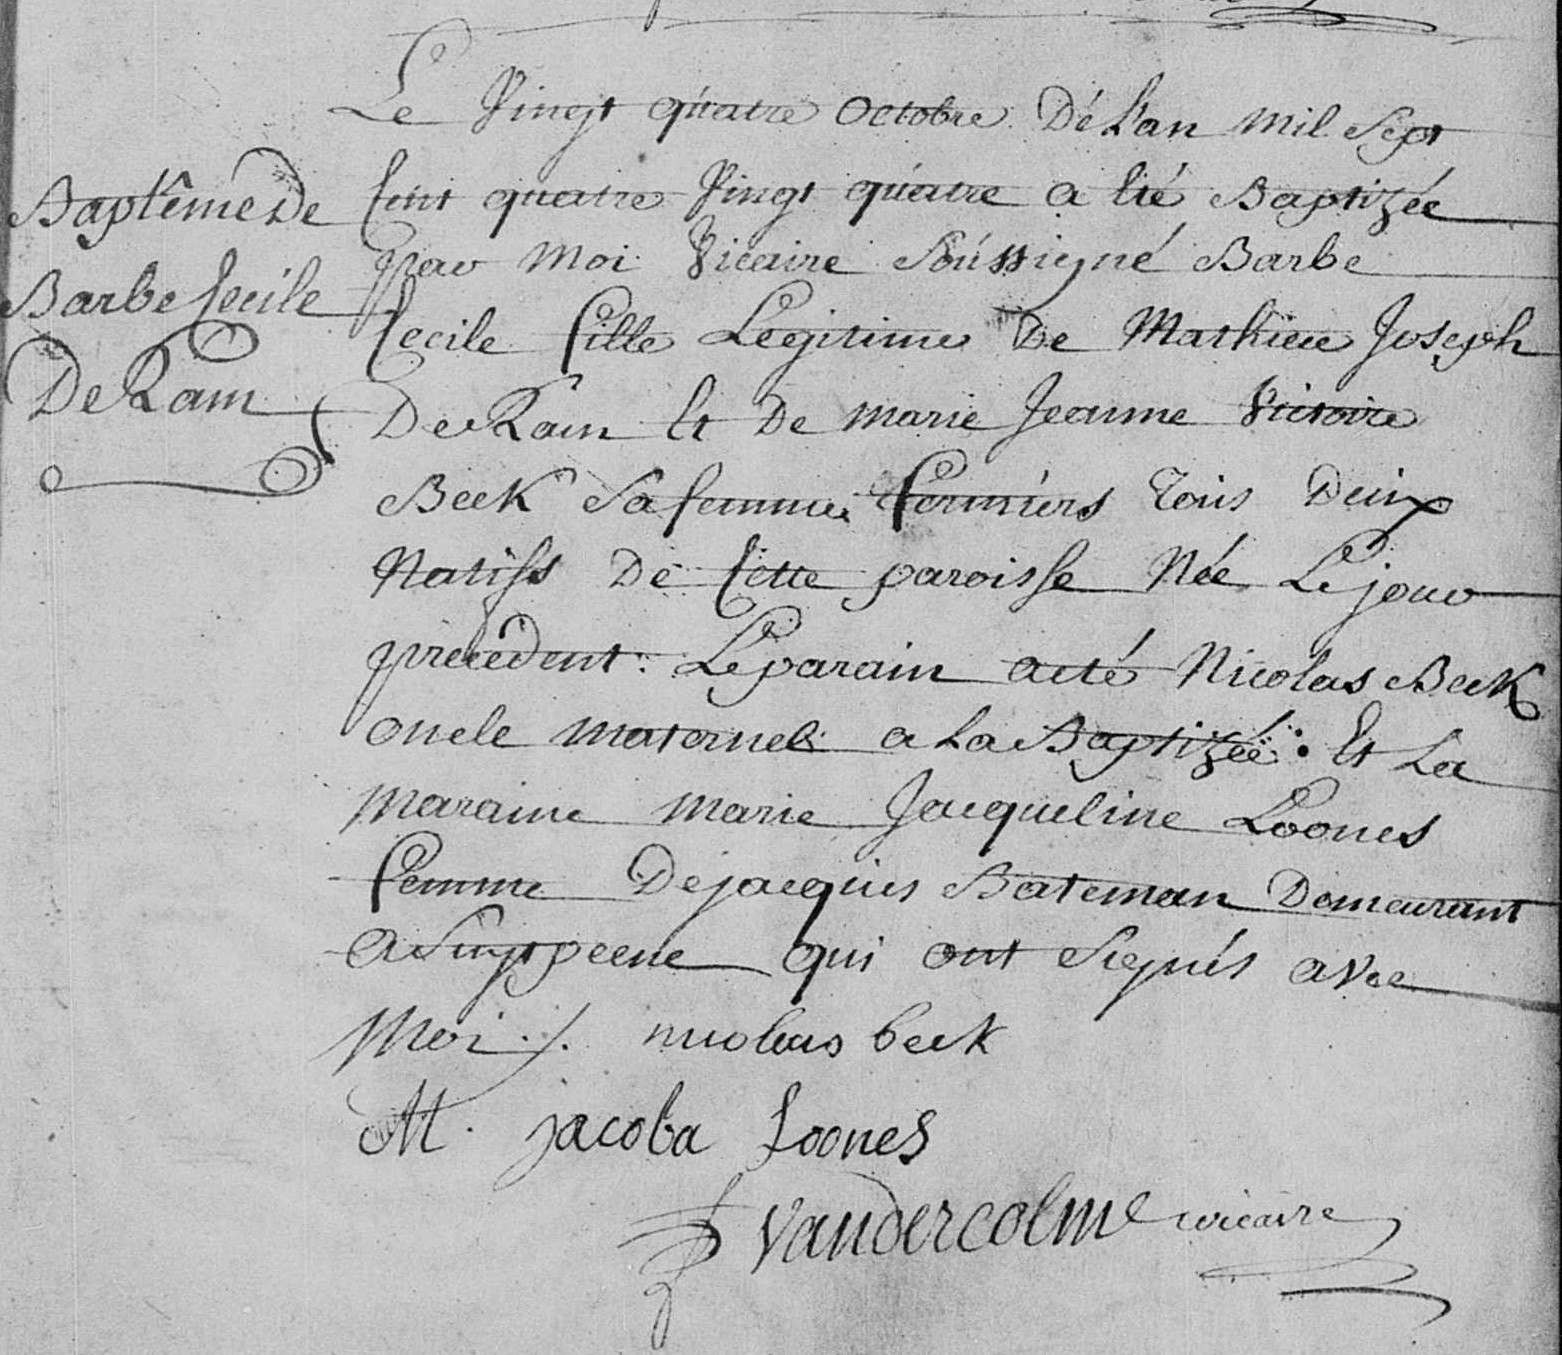 Le Vingt quatre Octobre Dé L'an Mil Sept
Cent quatre Vingt quatre a Eté Baptizée
par Moi Vicaire Soussigné Barbe
Cecile fille Legitime De Mathieu Joseph
De Ram Et De Marie Jeanne Victoire
Beck Sa femme fermiers Tous Deux
Natifs De Cette paroisse Née Le jour
precedent : Le parain a eté Nicolas Beck
oncle Maternel a La Baptizée : Et La
Maraine Marie Jacqueline Loones
femme De jacques Bateman Demeurant
A Suytpeene qui ont Signés avec
Moi ./. nicolas beck
M. jacoba Loones
Vandercolme vicaire
Baptême De
Barbe Cecile
De Ram